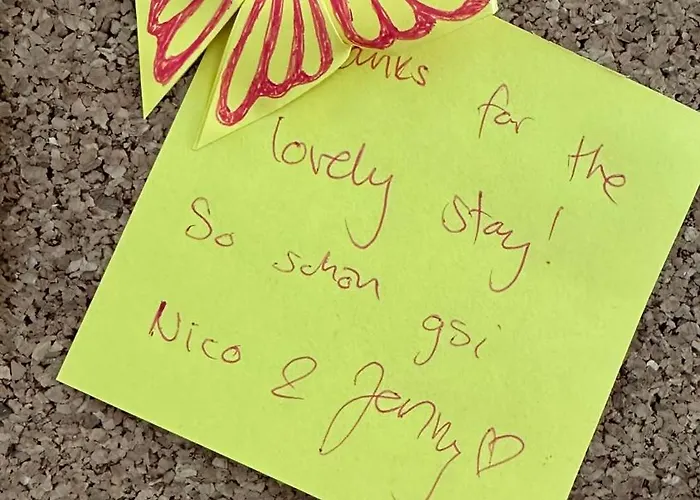 anks for the
lovely stay!
So schon gsi
Nico & Jenny ♡